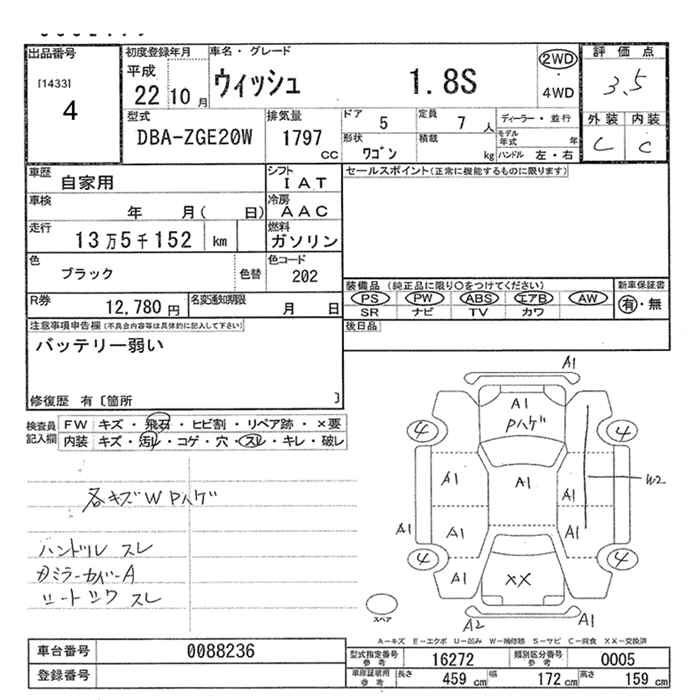 出品番号
[1433]
4
初度登録年月
平成
22 10 月
車名・グレード
ウィッシュ 1.8S
2WD
・
4WD
評価点
3.5
外装 内装
C C
型式
DBA-ZGE20W
排気量
1797
cc
ドア 5
定員 7 人
形状 ワゴン
積載 kg
ディーラー・並行
モデル年式 年
ハンドル 左・右
車歴 自家用
シフト IAT
車検 年 月( 日)
冷房 AAC
走行 13万5千152 km
燃料 ガソリン
色 ブラック 色替
色コード 202
R券 12,780 円
名変通知期限 月 日
セールスポイント(正常に機能するものに限ります)
装備品(純正品に限り○をつけてください)
PS PW ABS エアB AW
SR ナビ TV カワ
新車保証書
有・無
後日品
注意事項申告欄(不具合内容等は具体的に記入して下さい)
バッテリー弱い
修復歴 有〔箇所 〕
検査員記入欄
FW キズ・飛石・ヒビ割・リペア跡・×要
内装 キズ・汚レ・コゲ・穴・スレ・キレ・破レ
各キズW Pハゲ
ハンドル スレ
カミラーカバーA
シートシワ スレ
A1
A1
Pハゲ
4
4
A1
A1
A1
W2
A1
A1
A1
4
4
A1
XX
A1
A2
A1
スペア
A―キズ E―エクボ U―凹み W―補修跡 S―サビ C―腐食 XX―交換済
車台番号 0088236
登録番号
型式指定番号参考 16272
類別区分番号参考 0005
車庫証明用参考 長さ 459 cm 幅 172 cm 高さ 159 cm